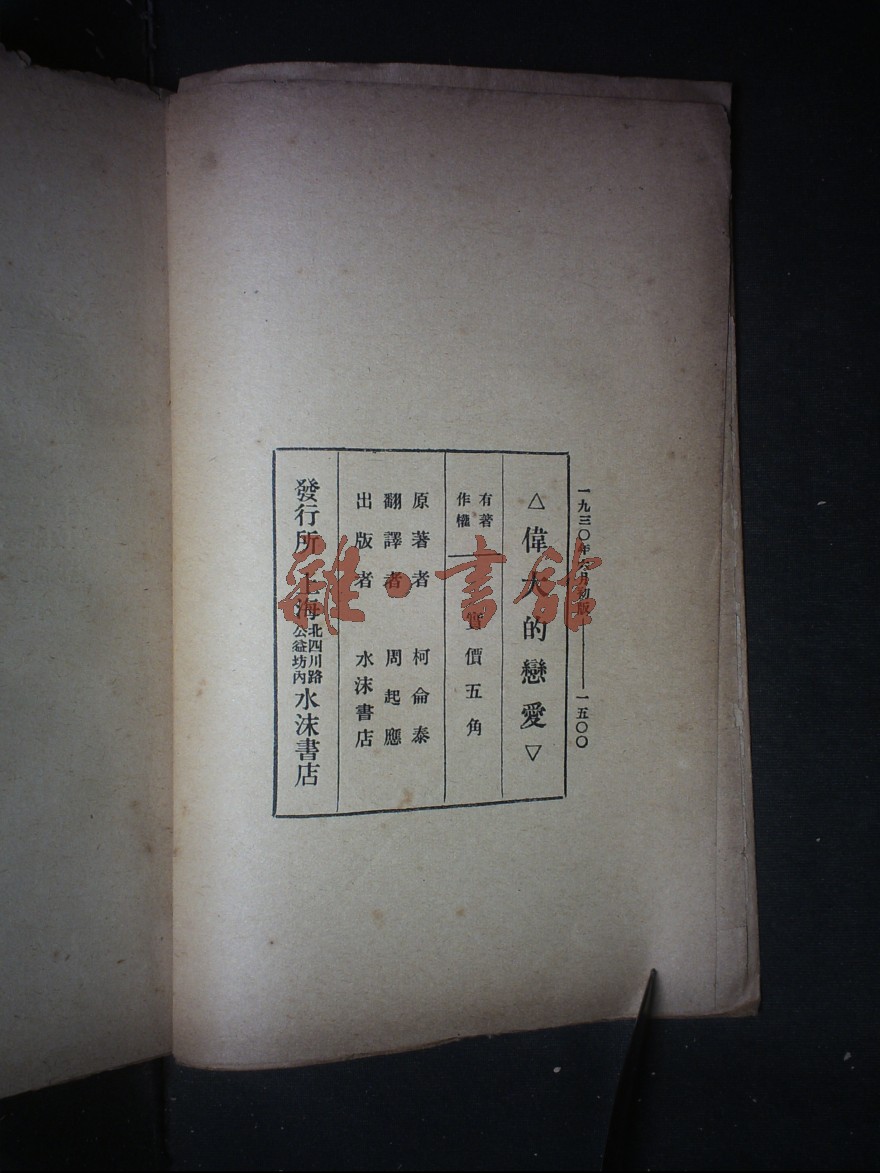 一九三〇年六月初版————一五〇〇
△偉大的戀愛▽
有著
作權
實價五角
原著者 柯侖泰
翻譯者 周起應
出版者 水沫書店
發行所 上海北四川路公益坊內水沫書店
雜·書館